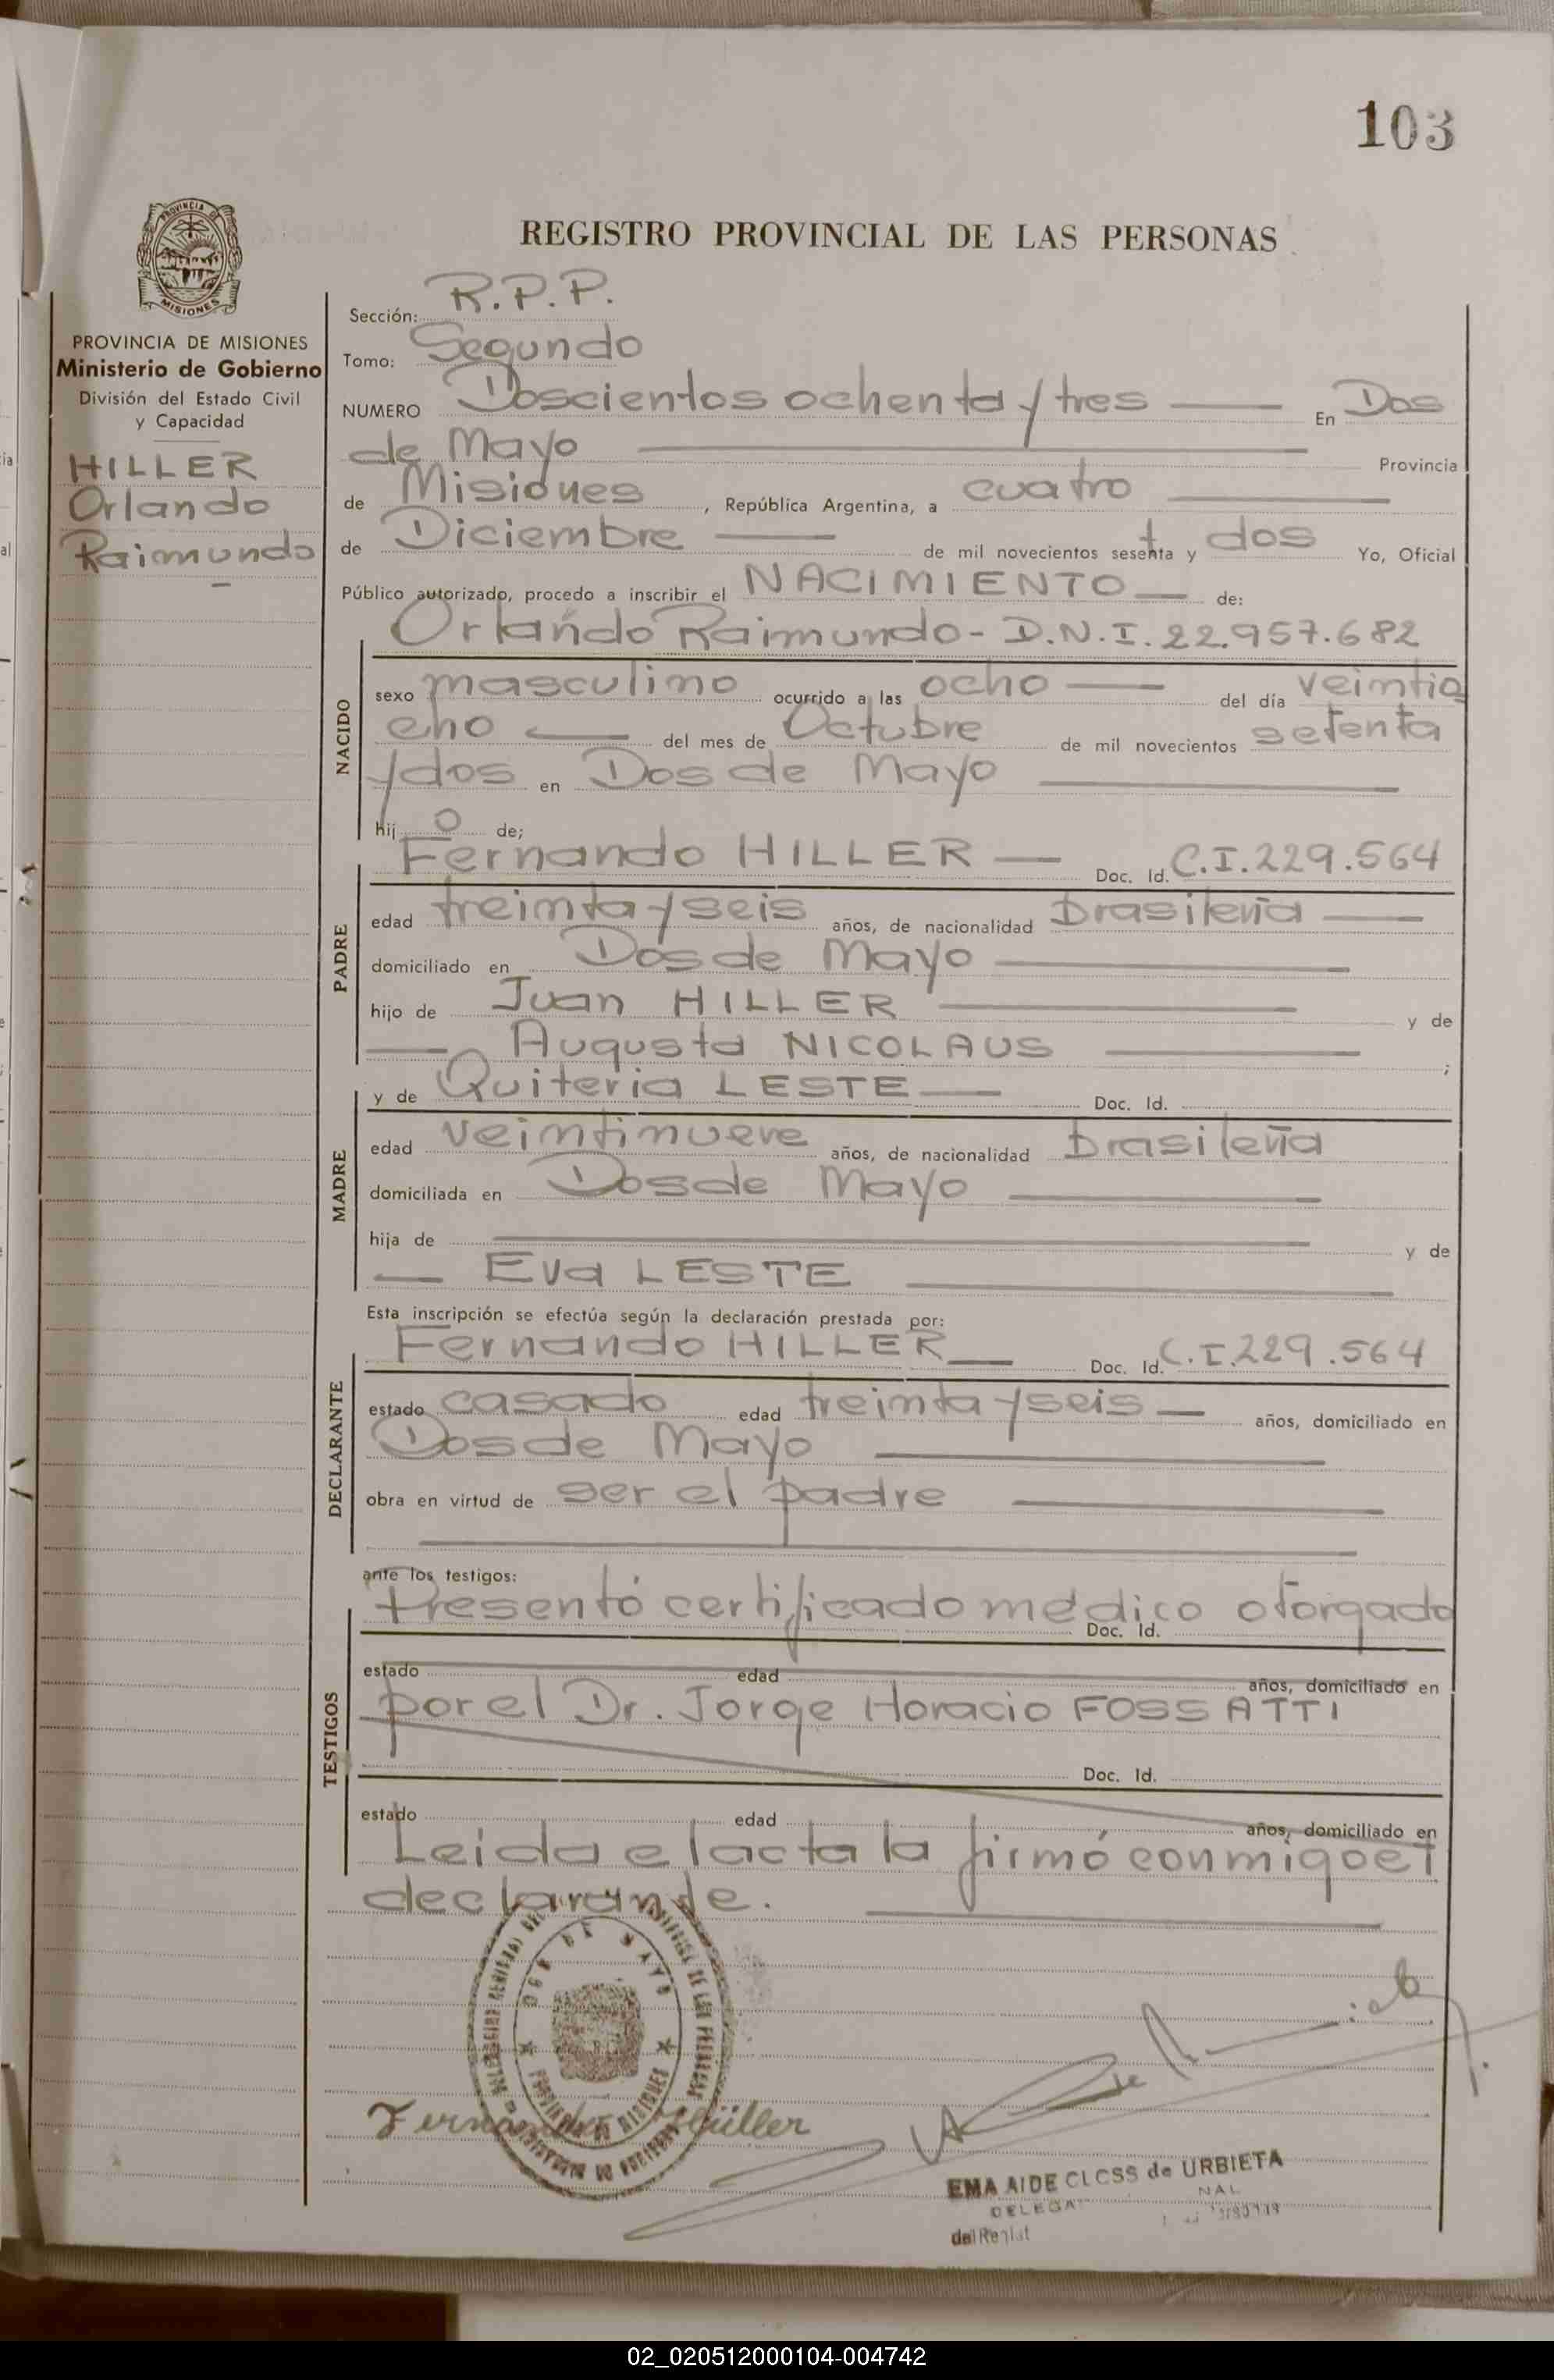 103
PROVINCIA DE MISIONES
REGISTRO PROVINCIAL DE LAS PERSONAS
PROVINCIA DE MISIONES
Ministerio de Gobierno
División del Estado Civil
y Capacidad
HILLER
Orlando
Raimundo
Sección: R.P.P.
Tomo: Segundo
NUMERO Doscientos ochenta y tres En Dos
de Mayo Provincia
de Misiones, República Argentina, a cuatro
de Diciembre de mil novecientos sesenta y dos Yo, Oficial
Público autorizado, procedo a inscribir el NACIMIENTO de:
Orlando Raimundo - D.N.I. 22.957.682
NACIDO
sexo masculino ocurrido a las ocho del día veintio
cho del mes de Octubre de mil novecientos setenta
y dos en Dos de Mayo
hijo de;
Fernando HILLER Doc. Id. C.I. 229.564
PADRE
edad treinta y seis años, de nacionalidad brasileña
domiciliado en Dos de Mayo
hijo de Juan HILLER y de
Augusta NICOLAUS ;
y de Quiteria LESTE Doc. Id.
MADRE
edad veintinueve años, de nacionalidad brasileña
domiciliada en Dos de Mayo
hija de y de
Eva LESTE
Esta inscripción se efectúa según la declaración prestada por:
Fernando HILLER Doc. Id. C.I. 229.564
DECLARANTE
estado casado edad treinta y seis años, domiciliado en
Dos de Mayo
obra en virtud de ser el padre
ante los testigos:
Presentó certificado médico otorgado
Doc. Id.
TESTIGOS
estado edad años, domiciliado en
por el Dr. Jorge Horacio FOSSATTI
Doc. Id.
estado edad años, domiciliado en
Leida el acta la firmó conmigo el
declarante.
DOS DE MAYO
PROVINCIA DE MISIONES
Fernando Hüller
EMA AIDE CLOSS de URBIETA
02_020512000104-004742